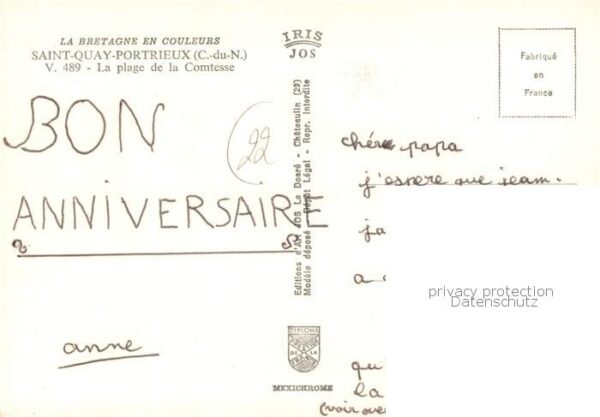 LA BRETAGNE EN COULEURS
SAINT-QUAY-PORTRIEUX (C.-du-N.)
V. 489 - La plage de la Comtesse
BON
ANNIVERSAIRE
anne
22
IRIS
JOS
Editions d'Art JOS Le Doaré - Châteaulin (29)
Modèle déposé - Dépôt Légal - Repr. Interdite
MEXICHROME
Fabriqué
en
France
chère papa
j'espere que jeam-
ja
a
privacy protection
Datenschutz
qu
la
(voir